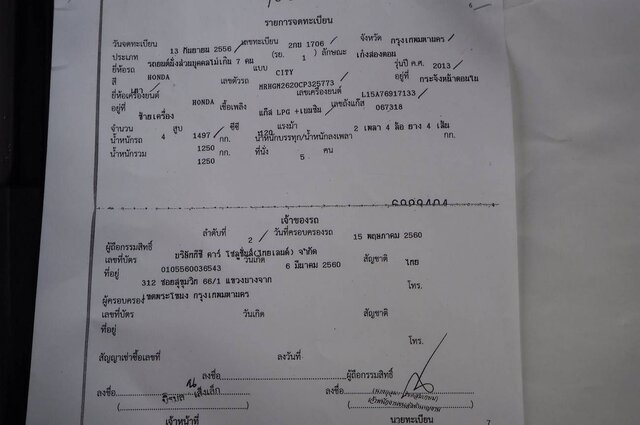 รายการจดทะเบียน
วันจดทะเบียน 13 กันยายน 2556 เลขทะเบียน 2กย 1706 จังหวัด กรุงเทพมหานคร
ประเภท รถยนต์นั่งส่วนบุคคลไม่เกิน 7 คน (รย. 1) ลักษณะ เก๋งสองตอน
ยี่ห้อรถ HONDA แบบ CITY รุ่นปี ค.ศ. 2013
สี เลขตัวรถ MRHGM2620CP325773 อยู่ที่ กระจังหน้าตอนใน
ยี่ห้อเครื่องยนต์ HONDA เลขเครื่องยนต์ L15A76917133
อยู่ที่ ซ้ายเครื่อง เชื้อเพลิง แก๊ส LPG +เบนซิน เลขถังแก๊ส 067318
จำนวน 4 สูบ 1497 ซีซี 120 แรงม้า 2 เพลา 4 ล้อ ยาง 4 เส้น
น้ำหนักรถ 1250 กก. น้ำหนักบรรทุก/น้ำหนักลงเพลา กก.
น้ำหนักรวม 1250 กก. ที่นั่ง 5 คน
เจ้าของรถ
ลำดับที่ 2 วันที่ครอบครองรถ 15 พฤษภาคม 2560
ผู้ถือกรรมสิทธิ์ บริษัทกีซี คาร์ โซลูชั่นส์(ไทยแลนด์) จำกัด
เลขที่บัตร 0105560036543 วันเกิด 6 มีนาคม 2560 สัญชาติ ไทย
ที่อยู่ 312 ซอยสุขุมวิท 66/1 แขวงบางจาก
เขตพระโขนง กรุงเทพมหานคร โทร.
ผู้ครอบครอง
เลขที่บัตร วันเกิด สัญชาติ
ที่อยู่
โทร.
สัญญาเช่าซื้อเลขที่ ลงวันที่
ลงชื่อ ผู้ถือกรรมสิทธิ์
ลงชื่อ ลงชื่อ
เสิงเล็ก
เจ้าหน้าที่ นายทะเบียน
7